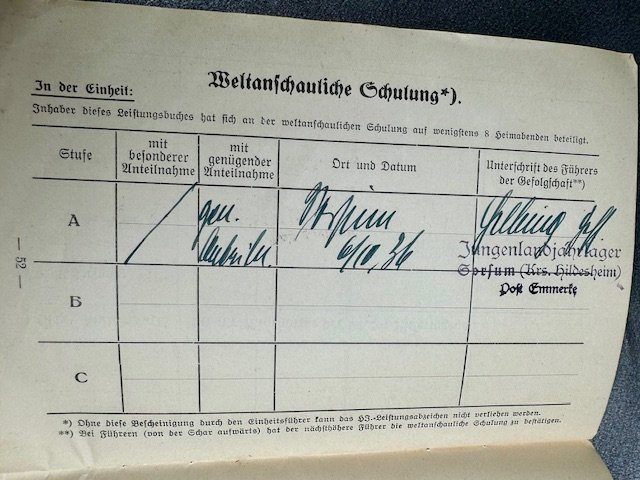 In der Einheit:
Weltanschauliche Schulung*).
Inhaber dieses Leistungsbuches hat sich an der weltanschaulichen Schulung auf wenigstens 8 Heimabenden beteiligt.
Stufe
mit
besonderer
Anteilnahme
mit
genügender
Anteilnahme
Ort und Datum
Unterschrift des Führers
der Gefolgschaft**)
A
gen.
6/10, 36
Jungenlandjahrlager
Sorsum (Krs. Hildesheim)
Post Emmerke
B
C
— 52 —
*) Ohne diese Bescheinigung durch den Einheitsführer kann das HJ.-Leistungsabzeichen nicht verliehen werden.
**) Bei Führern (von der Schar aufwärts) hat der nächsthöhere Führer die weltanschauliche Schulung zu bestätigen.